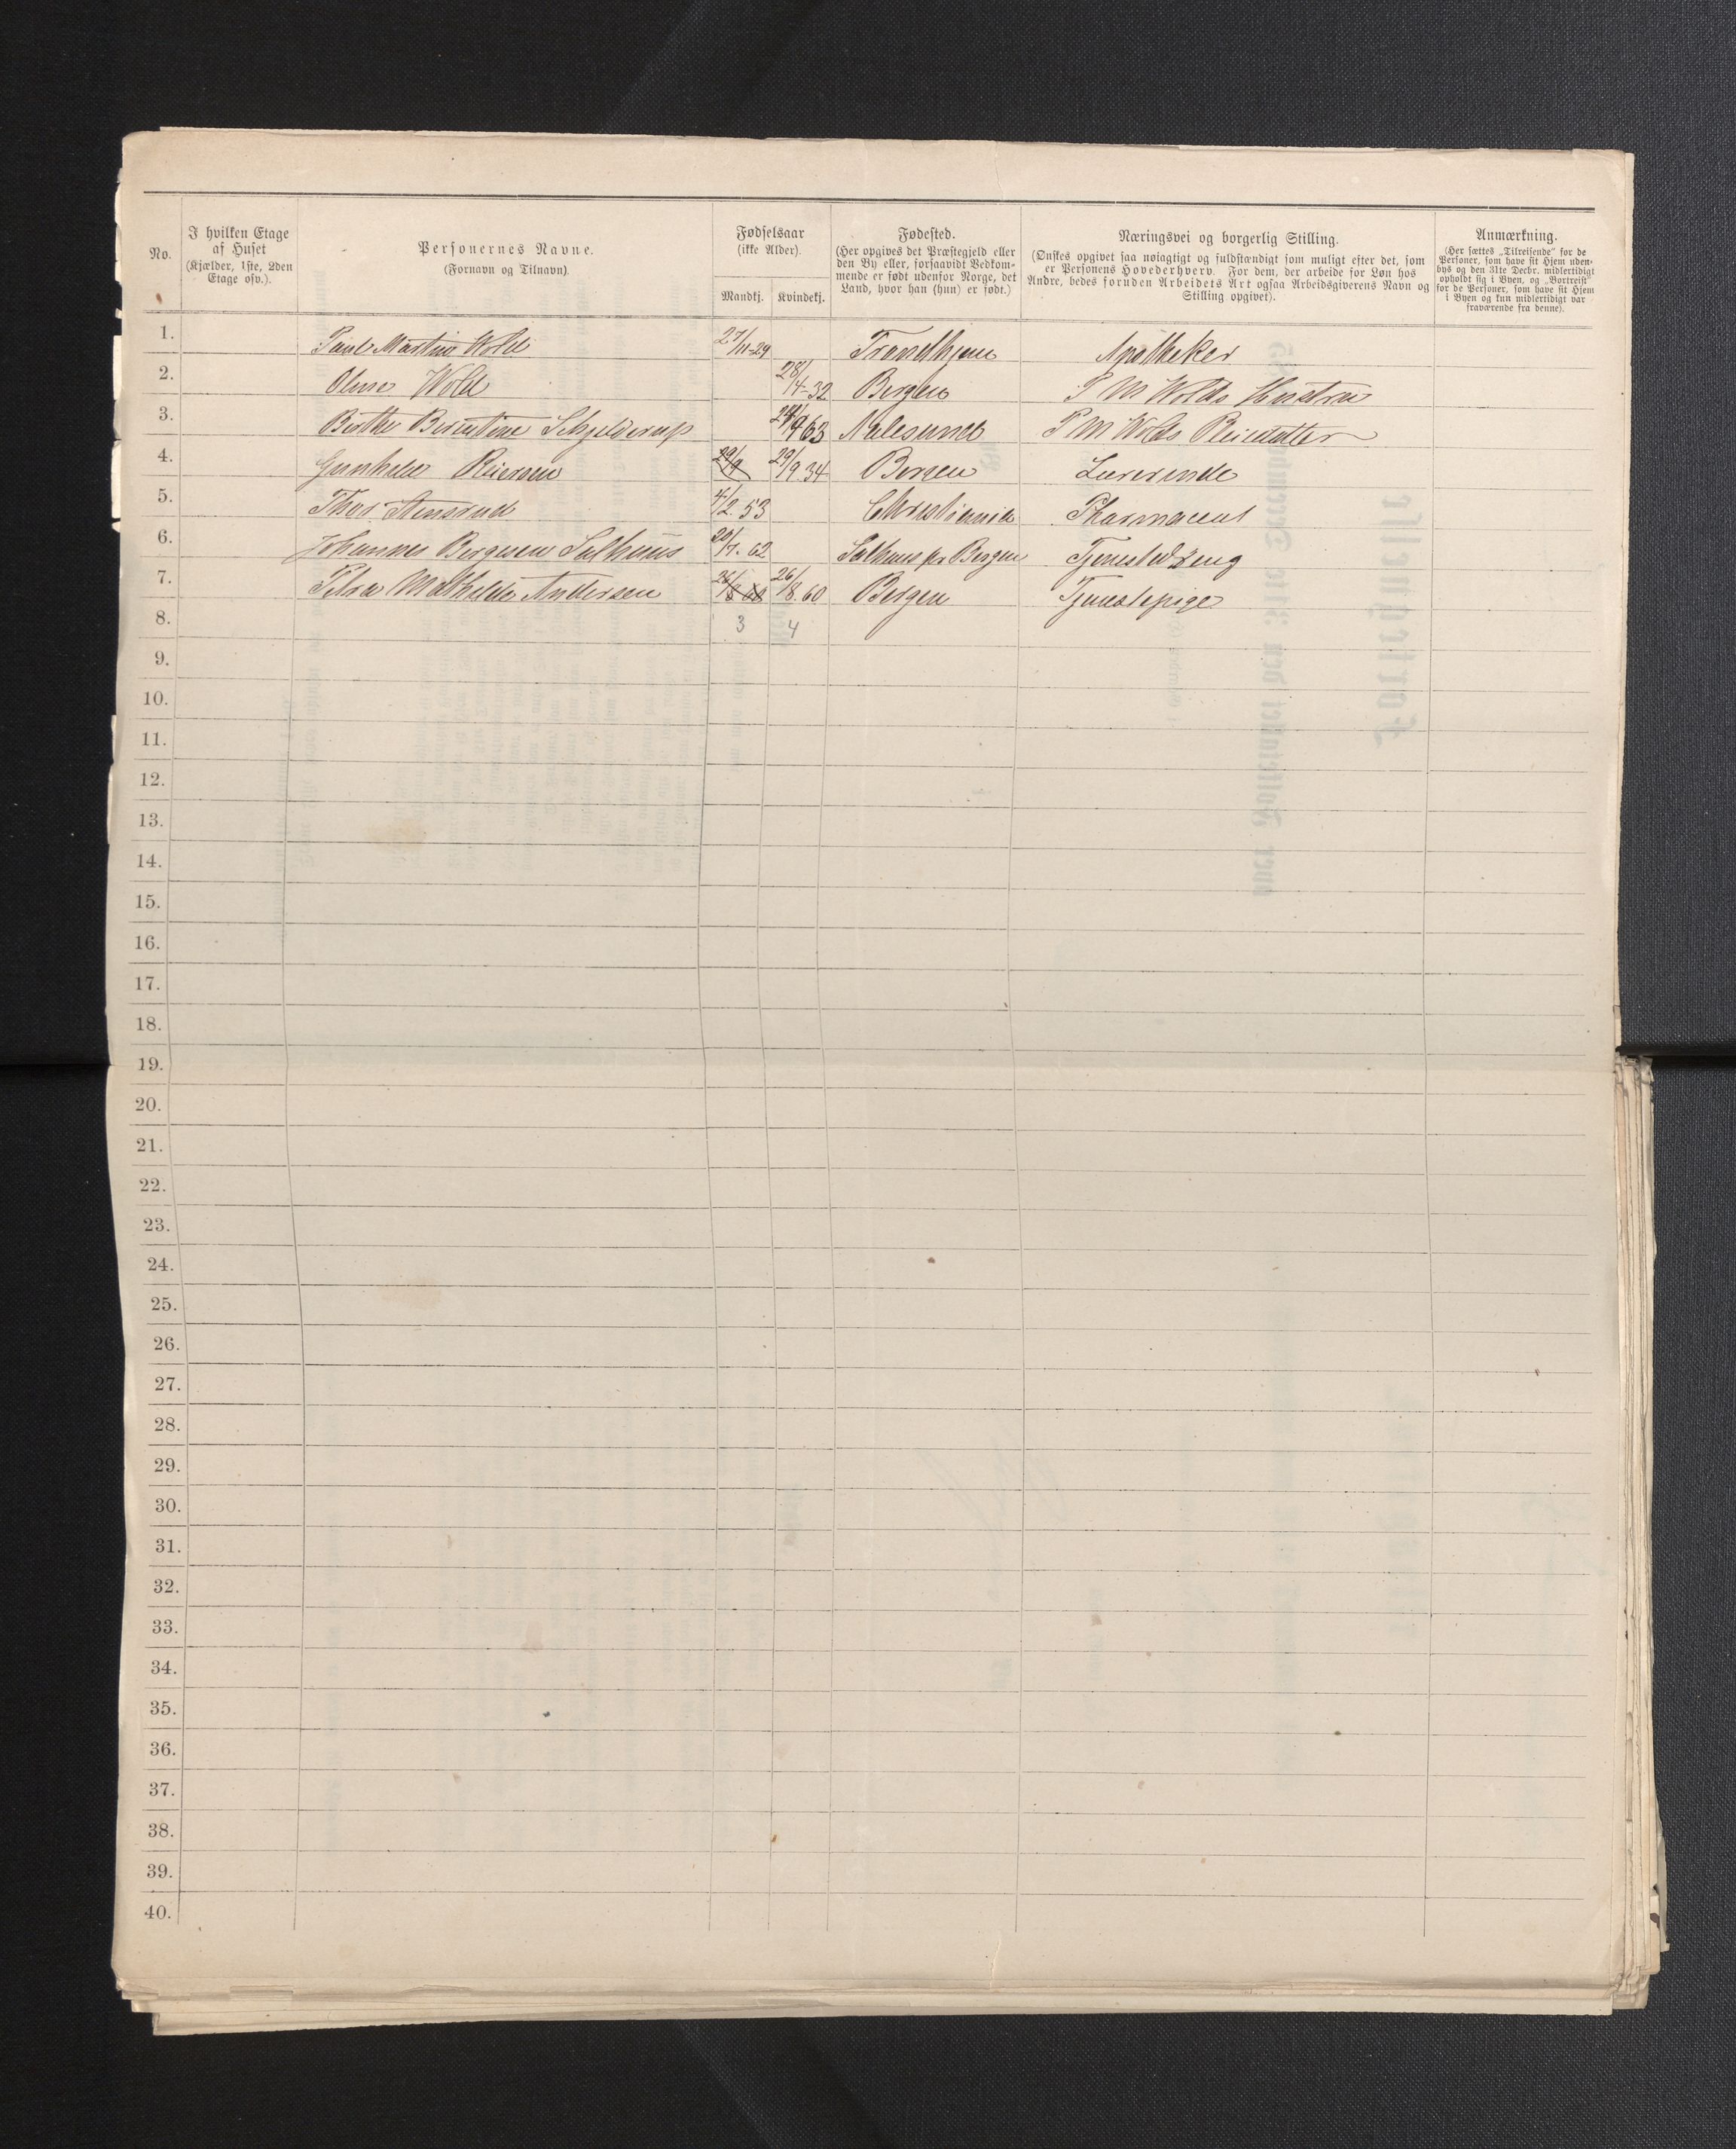 No.
I hvilken Etage
af Huset
(Kjælder, 1ste, 2den
Etage osv.).
Personernes Navne.
(Fornavn og Tilnavn).
Fødselsaar
(ikke Alder).
Mandkj. Kvindekj.
Fødested.
(Her opgives det Præstegjeld eller
den By eller, forsaavidt Vedkom-
mende er født udenfor Norge, det
Land, hvor han (hun) er født.)
Næringsvei og borgerlig Stilling.
(Ønskes opgivet saa nøiagtigt og fuldstændigt som muligt efter det, som
er Personens Hovederhverv. For dem, der arbeide for Løn hos
Andre, bedes foruden Arbeidets Art ogsaa Arbeidsgiverens Navn og
Stilling opgivet).
Anmærkning.
(Her sættes „Tilreisende“ for de
Personer, som have sit Hjem uden-
bys og den 31te Decbr. midlertidigt
opholdt sig i Byen, og „Bortreist“
for de Personer, som have sit Hjem
i Byen og kun midlertidigt var
fraværende fra denne).
1. Paul Martin Wold 27/11-29 Trondhjem Apotheker
2. Oluse Wold 28/4-32 Bergen P M Wolds Hustru
3. Birthe Berentine Schjelderup 24/9 63 Aalesund P M Wolds Pleiedatter
4. Gunhild Reiersen 29/9 29/9.34 Bergen Lærerinde
5. Thor Stensrud 4/2.53 Christiania Pharmaceut
6. Johannes Bergesen Salhuus 20/7.62 Salhuus pr Bergen Tjenestedreng
7. Petra Mathilde Andersen 26/8 60 26/8.60 Bergen Tjenestepige
8. 3 4
9.
10.
11.
12.
13.
14.
15.
16.
17.
18.
19.
20.
21.
22.
23.
24.
25.
26.
27.
28.
29.
30.
31.
32.
33.
34.
35.
36.
37.
38.
39.
40.